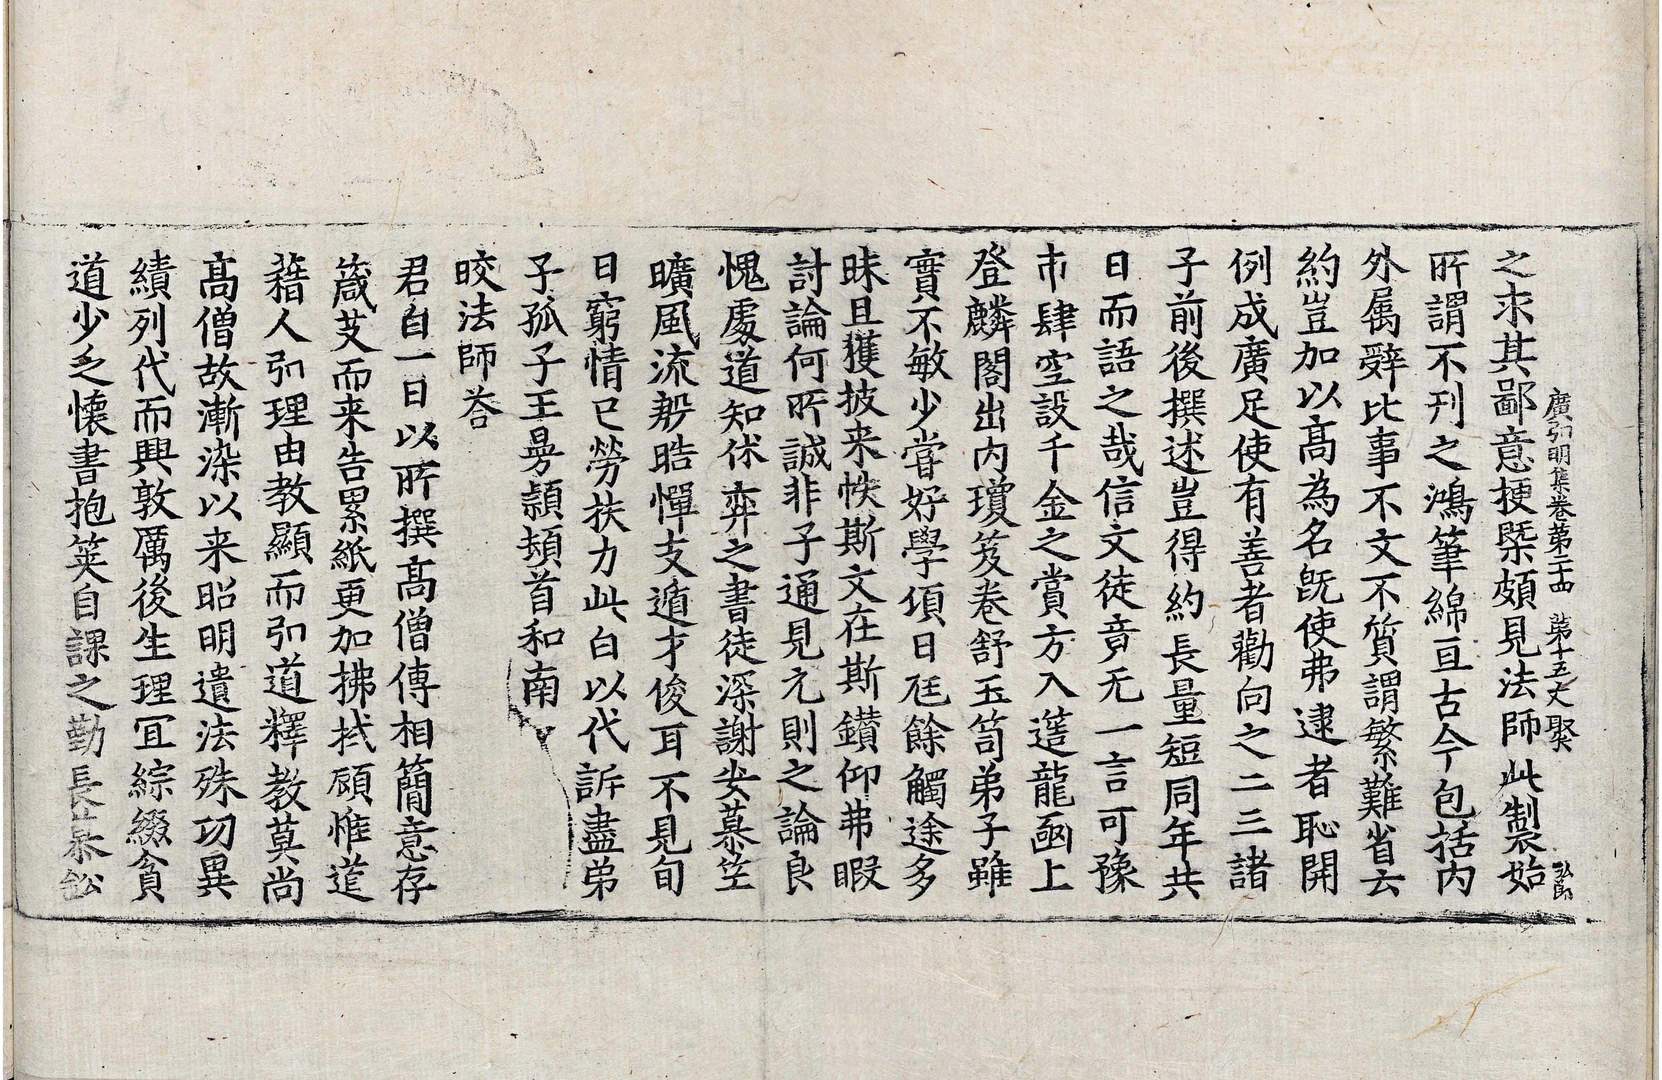 廣弘明集卷第二十四　第十五丈　聚
弘郎
之求其鄙意梗槩頗見法師此製始
所謂不刋之鴻筆綿亘古今包括内
外属辭比事不文不質謂繁難省云
約豈加以髙為名旣使弗逮者恥開
例成廣足使有善者勸向之二三諸
子前後撰述豈得約長量短同年共
日而語之哉信文徒竟无一言可豫
市肆空設千金之賞方入簉龍函上
登麟閣出内瓊笈卷舒玉笥弟子雖
實不敏少甞好學頃日尫餘觸途多
昧且獲披来帙斯文在斯鑚仰弗暇
討論何所誠非子通見元則之論良
愧處道知休弈之書徒深謝安慕笁
曠風流殷晧憚支遁才俊耳不見旬
日窮情已勞扶力此白以代訴盡弟
子孤子王曼頴頓首和南
晈法師荅
君白一日以所撰髙僧傳相簡意存
箴艾而来告累紙更加拂拭顧惟道
藉人弘理由教顯而弘道釋教莫尚
髙僧故漸染以来昭明遺法殊功異
績列代而興敦厲後生理冝綜綴貪
道少乏懷書抱筴自課之勤長